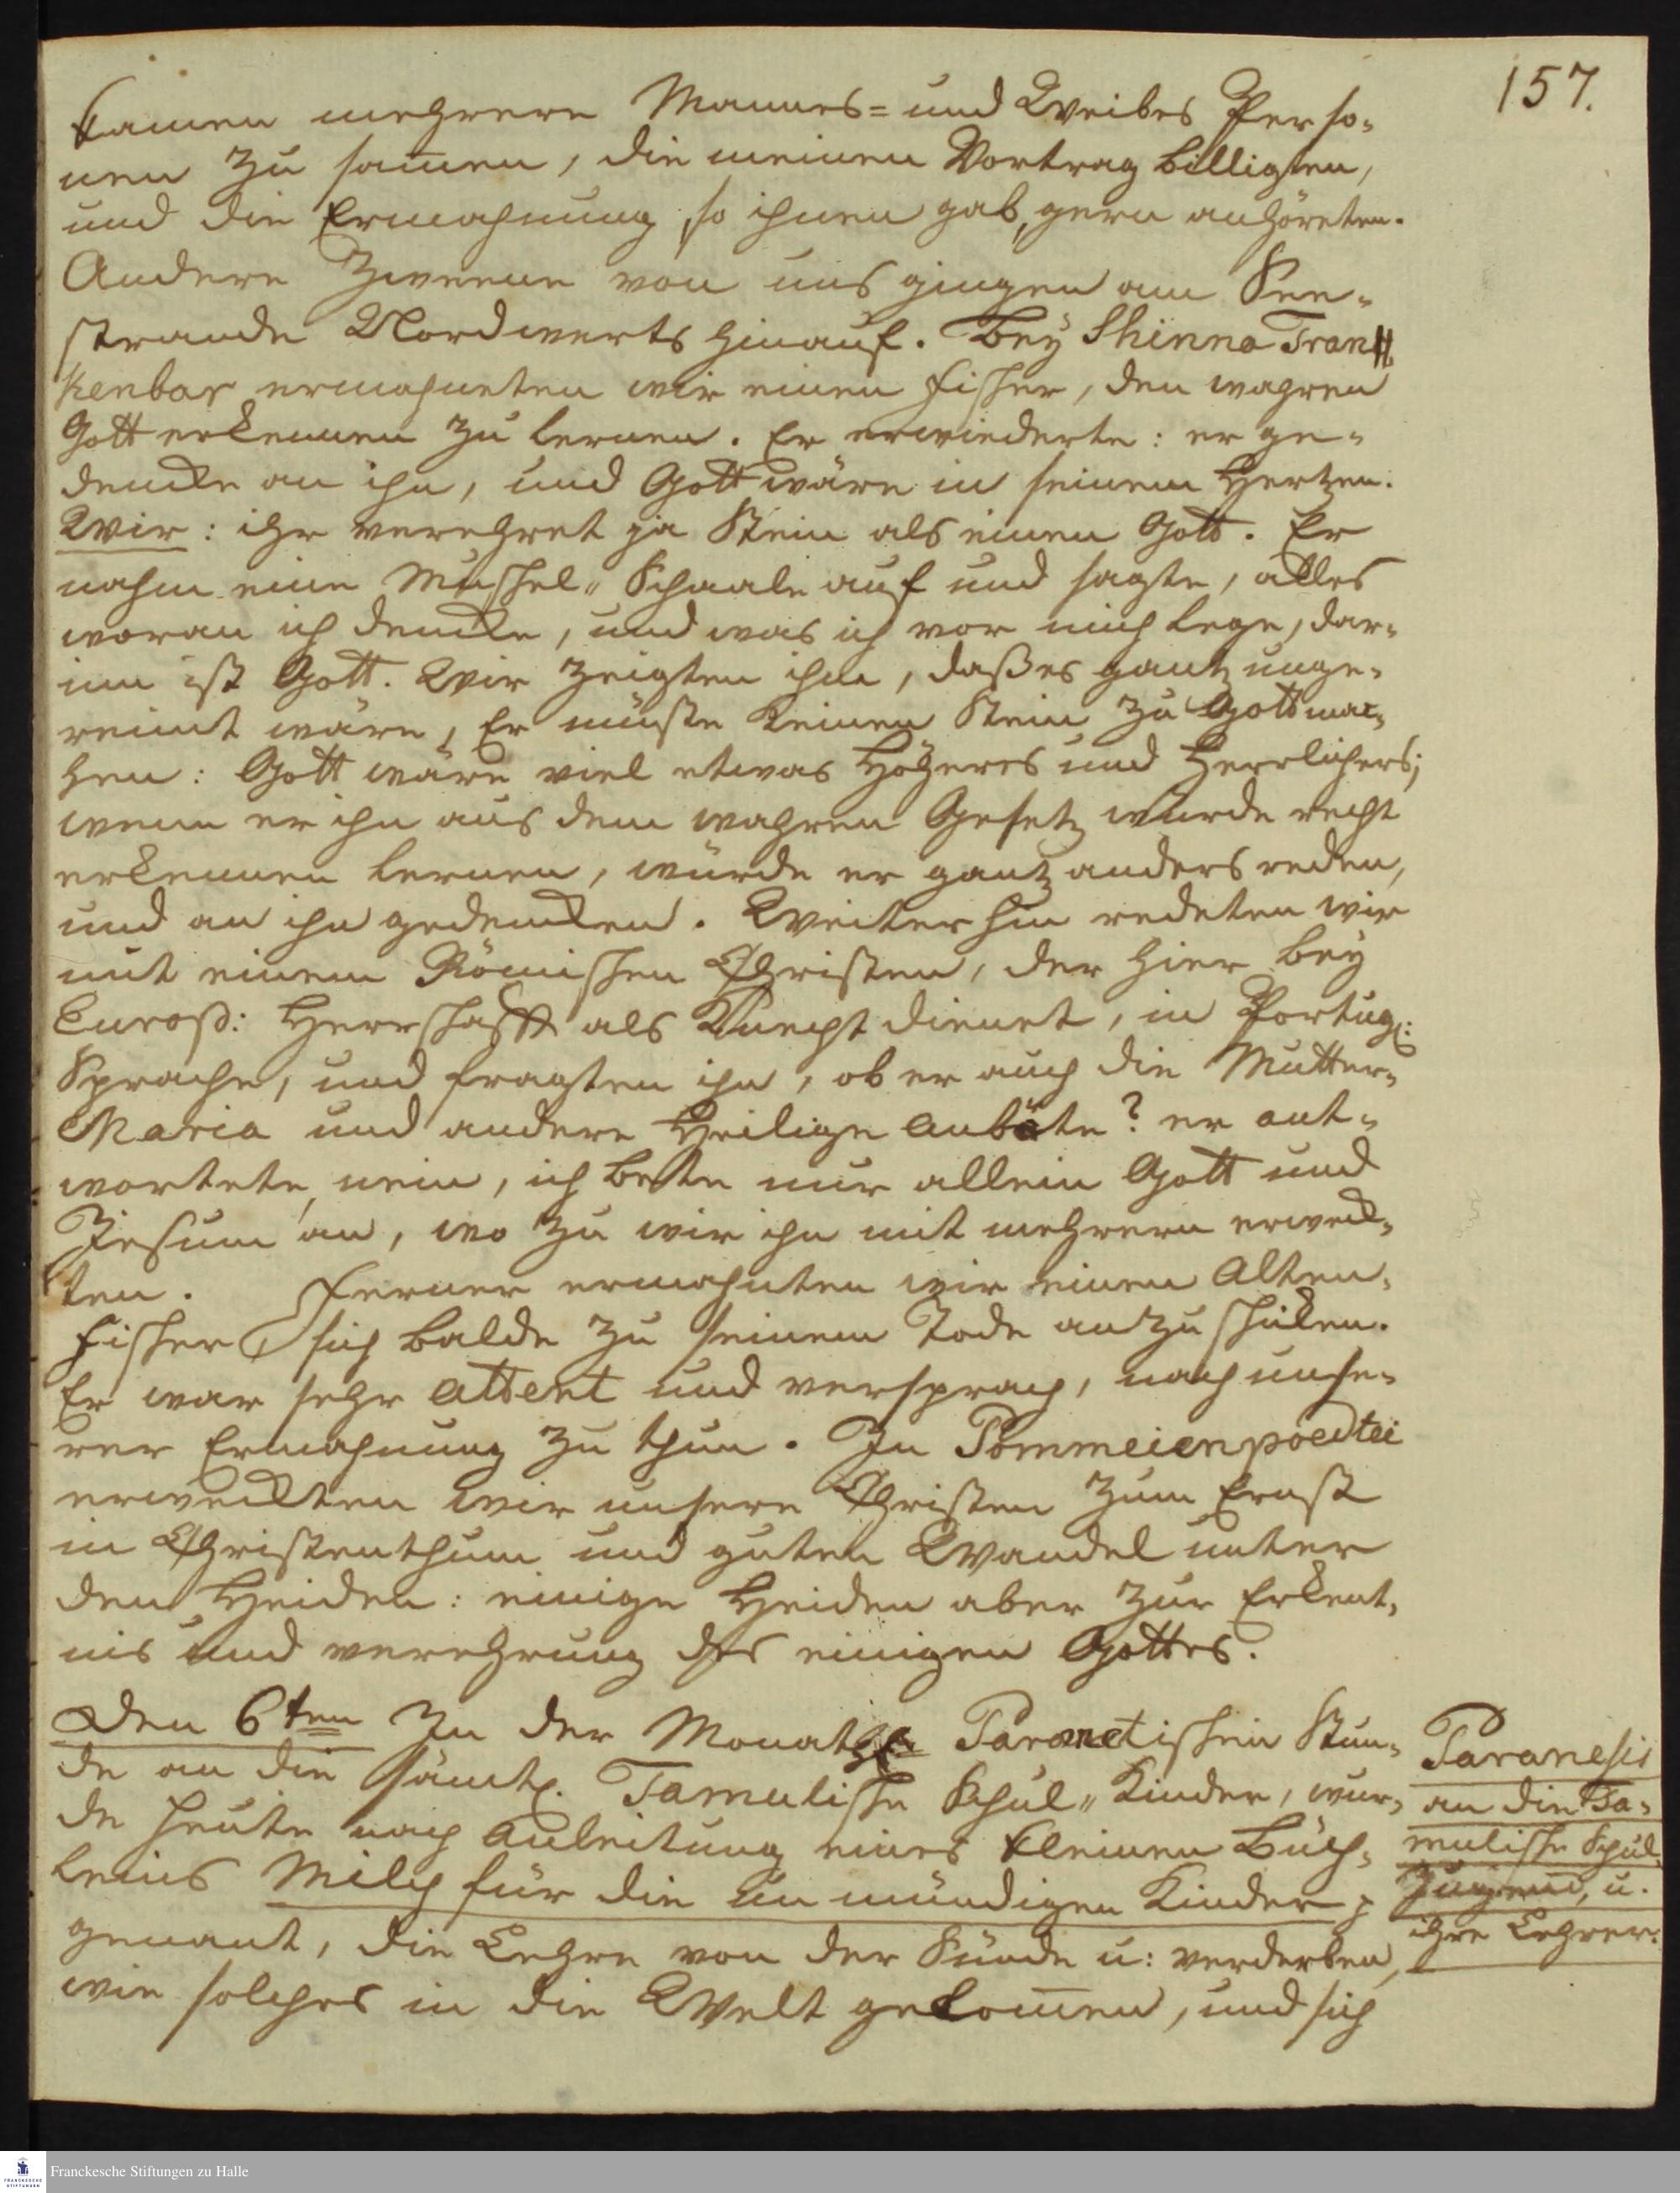 157.
kamen mehrere Mannes= und Weibes Perso-
nen zu sam̅en, die meinen Vortrag billigten,
und die Ermahnung so ihnen gab, gern anhöreten.
Andere Zweene von uns gingen am See-
strande Nordwerts hinauf. Bey Shinna Tran
kenbar ermahneten wir einen Fischer, den wahren
Gott erkennen zu lernen. Er erwiederte: er ge-
dencke an ihn, und Gott wäre in seinem Hertzen.
Wir: ihr verehret ja Stein als einen Gott. Er
nahm eine Muschel„ Schaale auf und sagte, alles
woran ich dencke, und was ich vor mich lege, dar-
inn ist Gott. Wir zeigten ihm, daß es gantz unge-
reimt wäre, Er müste keinen Stein zu Gott mac-
hen: Gott wäre viel etwas Höheres und Herrlichers;
wenn er ihn aus dem wahren Gesetz würde recht
erkennen lernen, würde er gantz anders reden,
und an ihn gedencken. Weiter hin redeten wir
mit einem Römischen Christen, der hier bey
Europ: Herrschafft als Knecht dienet, in Portug:
Sprache, und fragten ihn, ob er auch die Mutter-
Maria und andere Heilige anbäte? er ant-
wortete, nein, ich bette nur allein Gott und
Jesum an, wo zu wir ihn mit mehrern erweck-
ten. Ferner ermahnten wir einen Alten
Fischer sich balde zu seinem Tode anzuschicken.
Er war sehr attent und versprach, nach unse-
rer Ermahnung zu thun. In Pommeienpoedtei
erweckten wir unsere Christen zum Ernst
in Christenthum und guten Wandel unter
den Heiden: einige Heiden aber zur Erkent-
nis und verehrung des einigen Gottes.
Den 6ten In der Monathl Paranetischen Stun-
de an die sämtl. Tamulische Schul„ Kinder, wur-
de heute nach Anleitung eines kleinen Büch-
leins Milch für die unmündigen Kinder
genant, die Lehre von der Sünde u: verderben,
wie solches in die Welt gekom̅en, und sich
Paranesis
an die Ta-
mulische Schul
Jugend, u.
ihre Lehrer.
Franckesche Stiftungen zu Halle